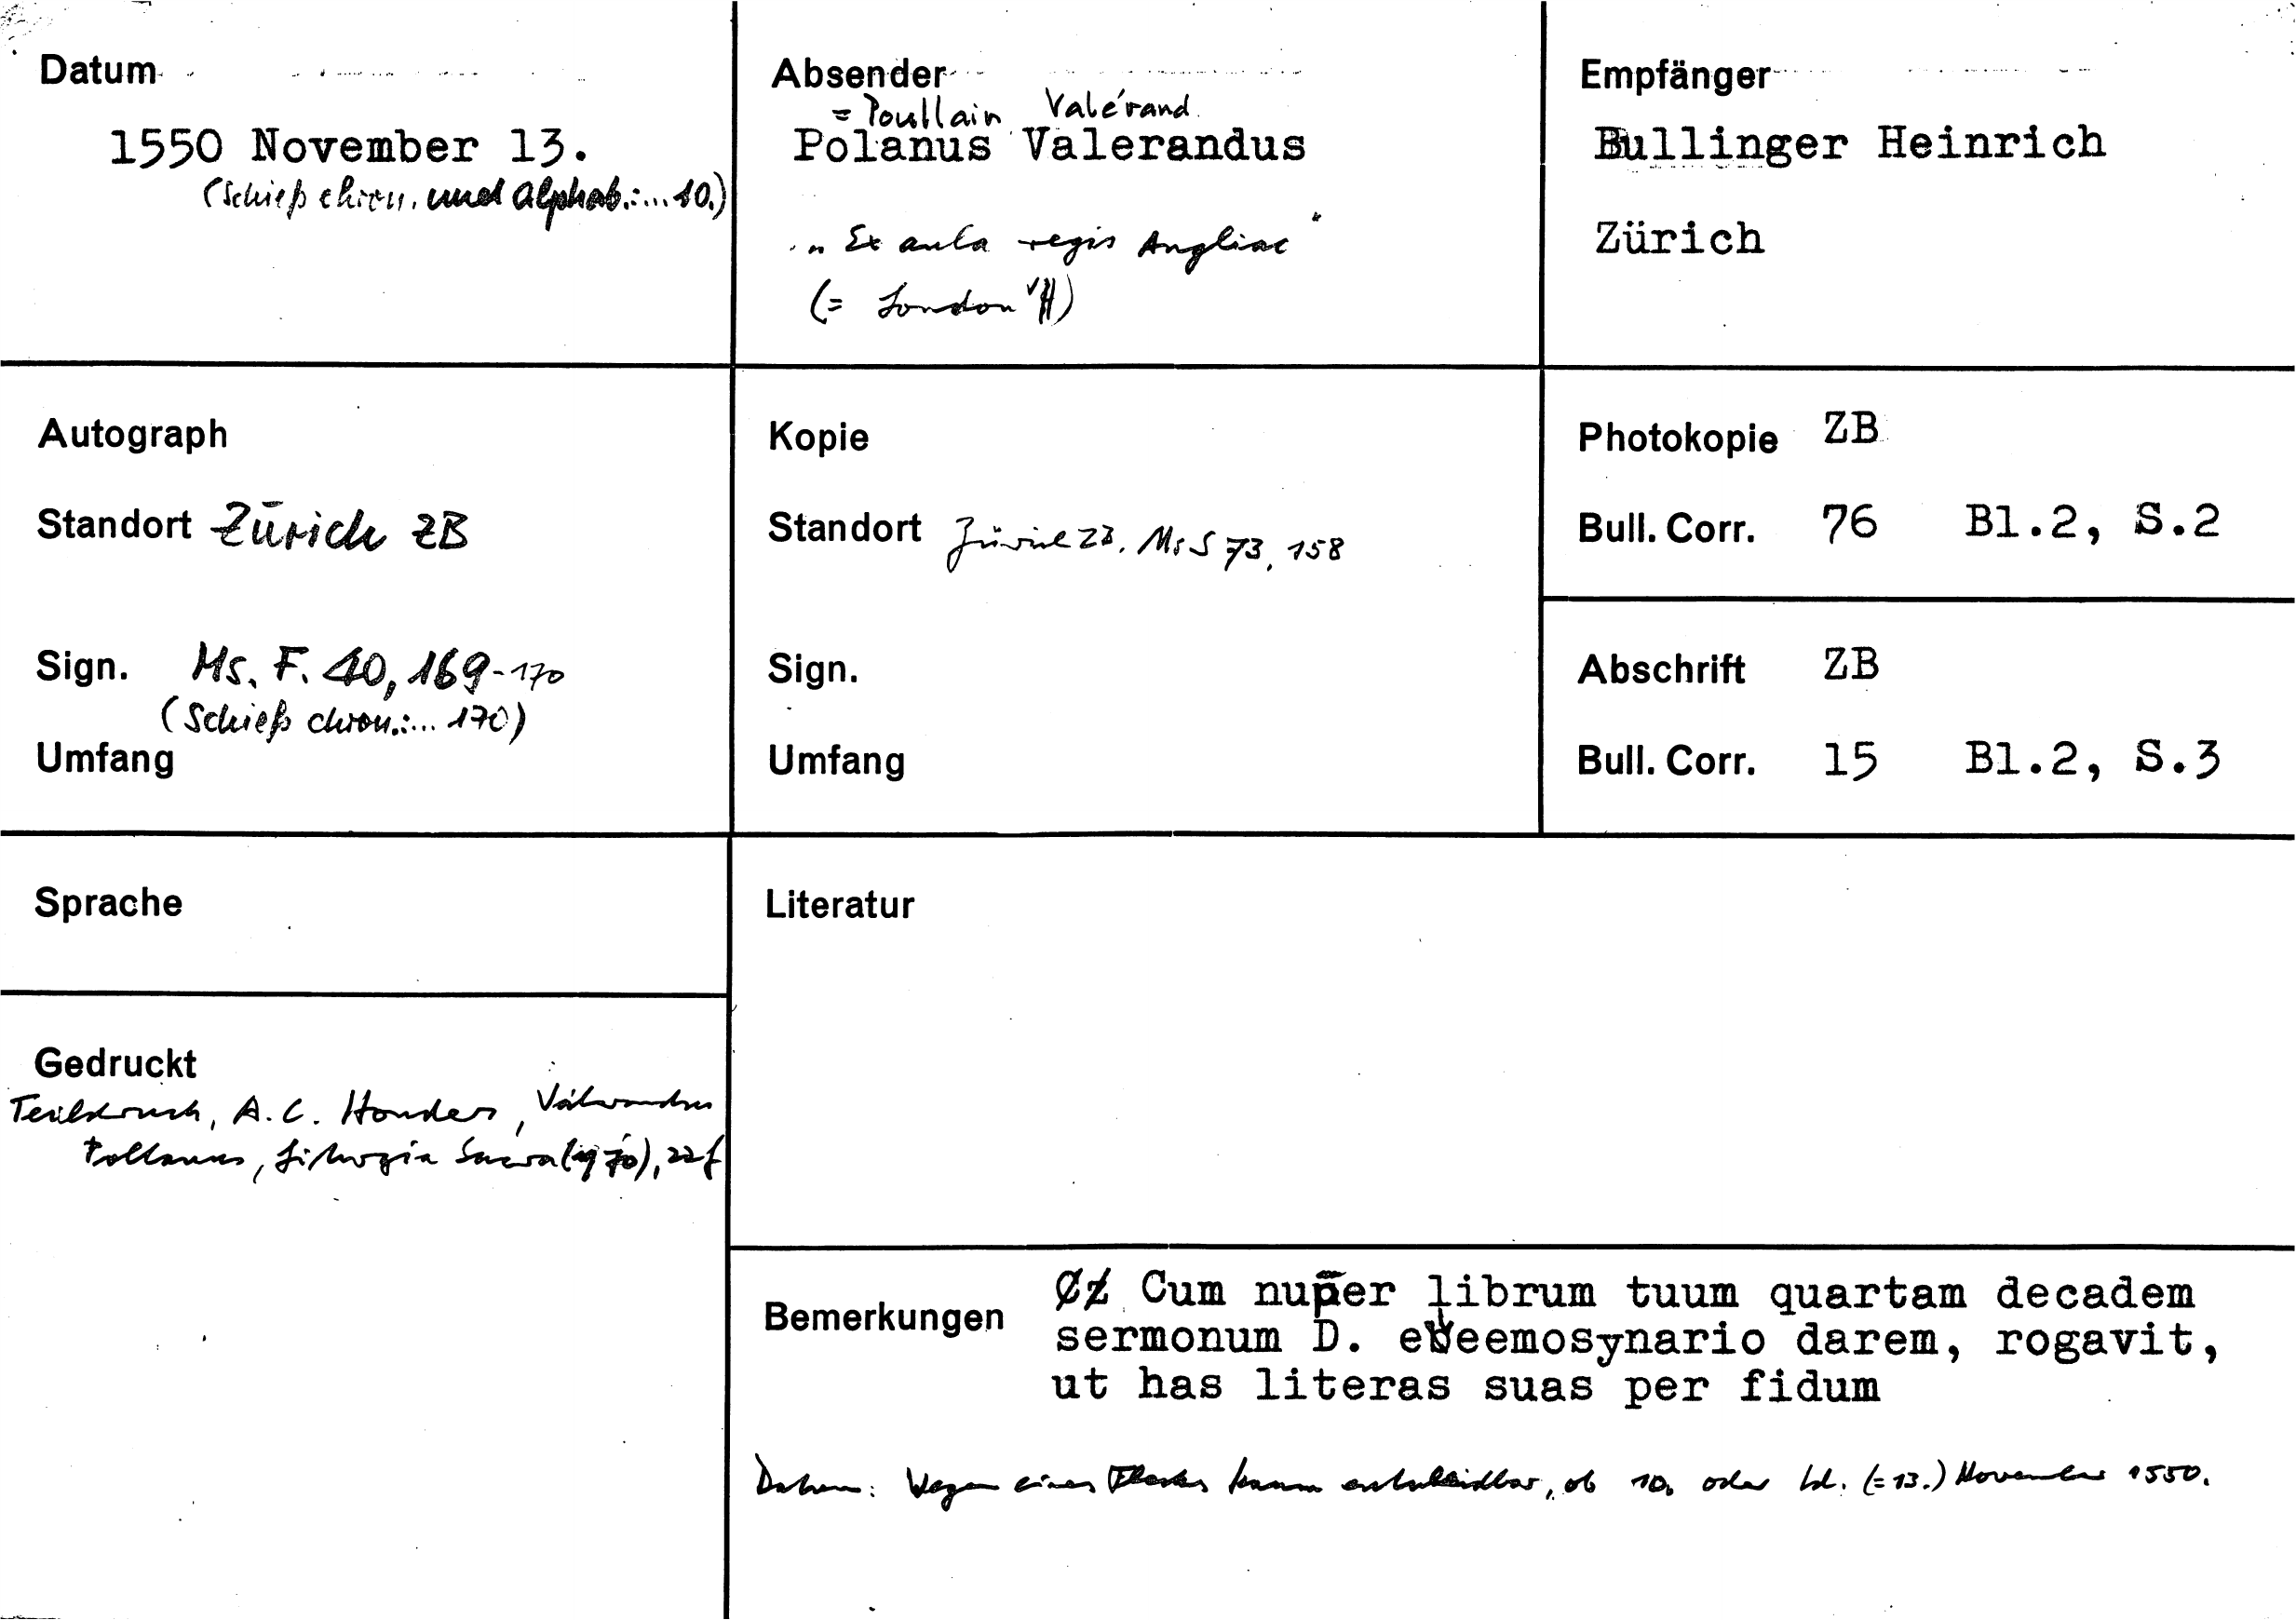 Datum
1550 November 13.
(Schieß chron. und alphab.:... 10.)
Absender
= Poullain Valérand
Polanus Valerandus
"Ex aula regis Angliae"
(= London)
Empfänger
Bullinger Heinrich
Zürich
Autograph
Standort Zürich ZB
Sign. Ms. F. 40, 169-170
(Schieß chron.:... 170)
Umfang
Kopie
Standort Zürich ZB. Ms S 73, 158
Sign.
Umfang
Photokopie ZB
Bull. Corr. 76 Bl.2, S.2
Abschrift ZB
Bull. Corr. 15 Bl.2, S.3
Sprache
Gedruckt
Teildruck, A.C. Honders, Valerandus
Pollanus, Liturgia Sacra (1970), 22f
Literatur
Bemerkungen
Cum nuper librum tuum quartam decadem
sermonum D. eleemosynario darem, rogavit,
ut has literas suas per fidum
Datum: Wegen eines Flecks kaum entscheidbar, ob 10. oder Id. (=13.) November 1550.